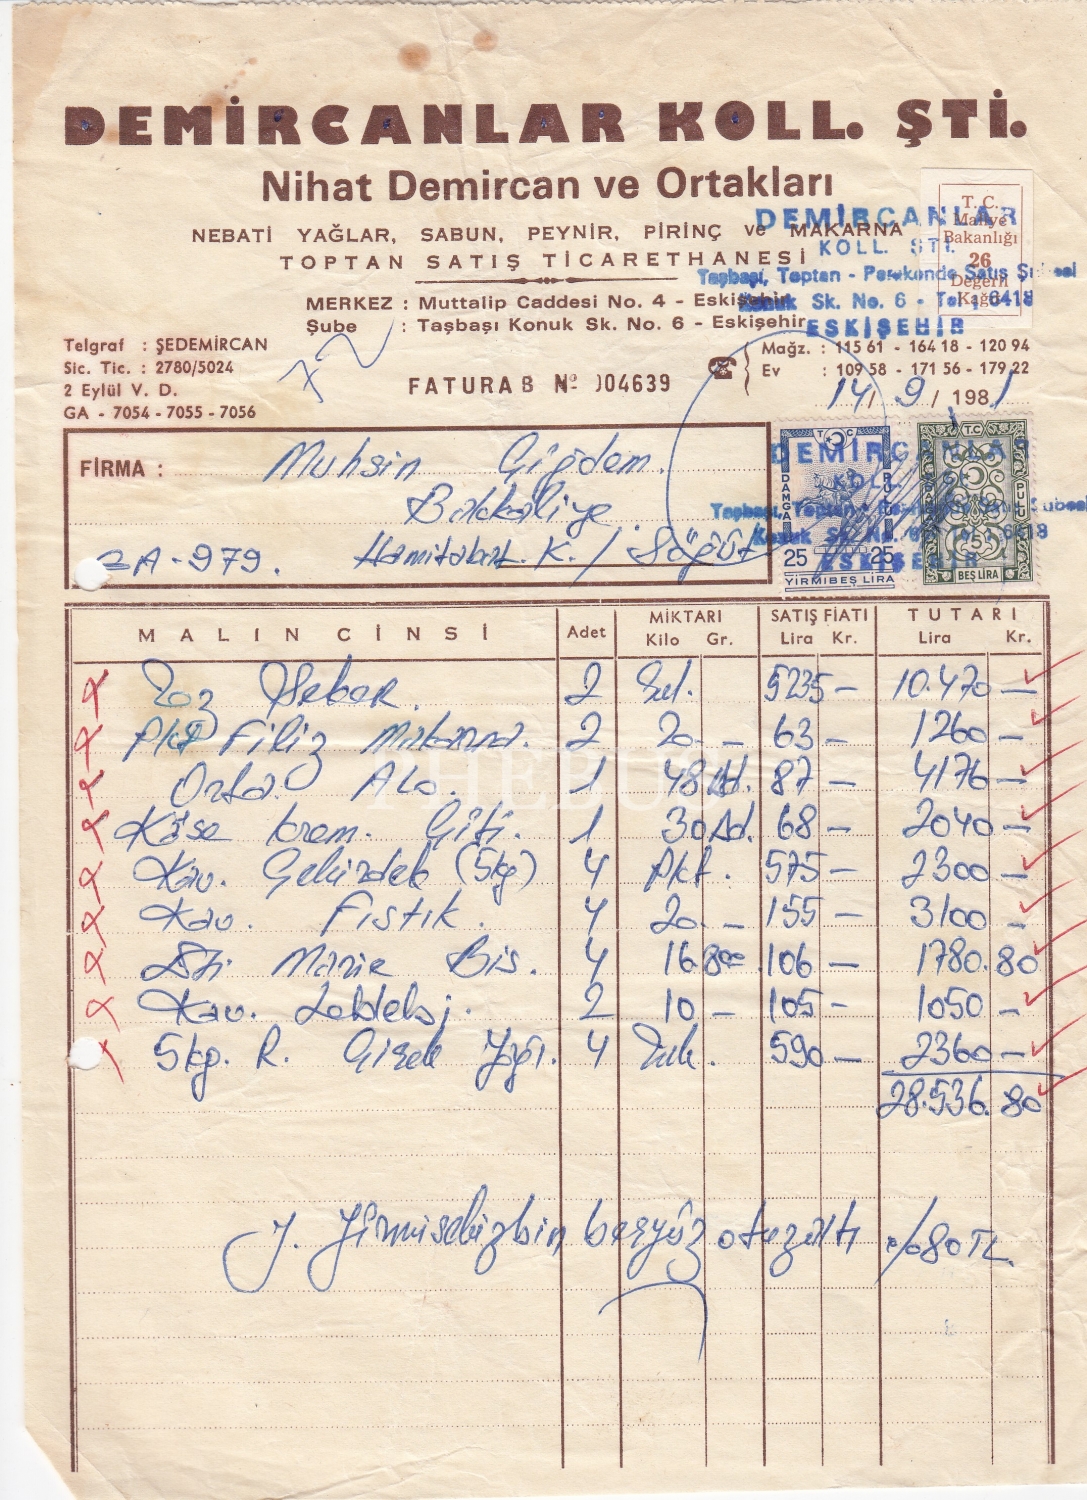 DEMİRCANLAR KOLL. ŞTİ.
Nihat Demircan ve Ortakları
NEBATİ YAĞLAR, SABUN, PEYNİR, PİRİNÇ ve MAKARNA
TOPTAN SATIŞ TİCARETHANESİ
MERKEZ : Muttalip Caddesi No. 4 - Eskişehir
Şube : Taşbaşı Konuk Sk. No. 6 - Eskişehir
T. C.
Maliye
Bakanlığı
26
Değerli
Kağıt
DEMİRCANLAR
KOLL. ŞTİ.
Taşbaşı, Toptan - Perakende Satış Şubesi
Konuk Sk. No. 6 - Tel : 6418
ESKİŞEHİR
Telgraf : ŞEDEMİRCAN
Sic. Tic. : 2780/5024
2 Eylül V. D.
GA - 7054 - 7055 - 7056
72
FATURA B Nº 004639
Mağz. : 115 61 - 164 18 - 120 94
Ev : 109 58 - 171 56 - 179 22
14 / 9 / 1981
FİRMA : Muhsin Çiğdem.
Bakkaliye
2A-979. Hamitabat K. / Söğüt
T C
DAMGA PULU
25 25
YİRMİBEŞ LİRA
T.C
DAMGA PULU
5
BEŞ LİRA
DEMİRCANLAR
KOLL. ŞTİ.
Taşbaşı, Toptan - Perakende Satış Şubesi
Konuk Sk. No. 6 - Tel : 6418
ESKİŞEHİR
MALIN CİNSİ Adet MİKTARI Kilo Gr. SATIŞ FİATI Lira Kr. TUTARI Lira Kr.
Toz Şeker. 2 5235 — 10.470 —
Pkt Filiz Makarna. 2 20 — 63 — 1260 —
Orta Alo. 1 48 Ad. 87 — 4176 —
Köse krem. Çiti. 1 30 Ad. 68 — 2040 —
Kav. Çekirdek (5kg) 4 Pkt. 575 — 2300 —
Kav. Fıstık. 4 20. — 155 — 3100 —
Marie Bis. 4 16.800 106 — 1780.80
Kav. Leblebi. 2 10 — 105 — 1050 —
5kg. R. Çiçek Yağı. 4 590 — 2360 —
28.536.80
Y. Yirmisekizbin beşyüz otuzaltı %80 TL.
PHEBUS